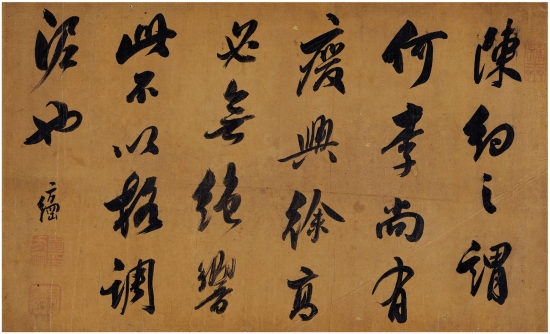 陳約之謂
何李尚有
廢興徐高
必無絕響
此不以格調
泥也